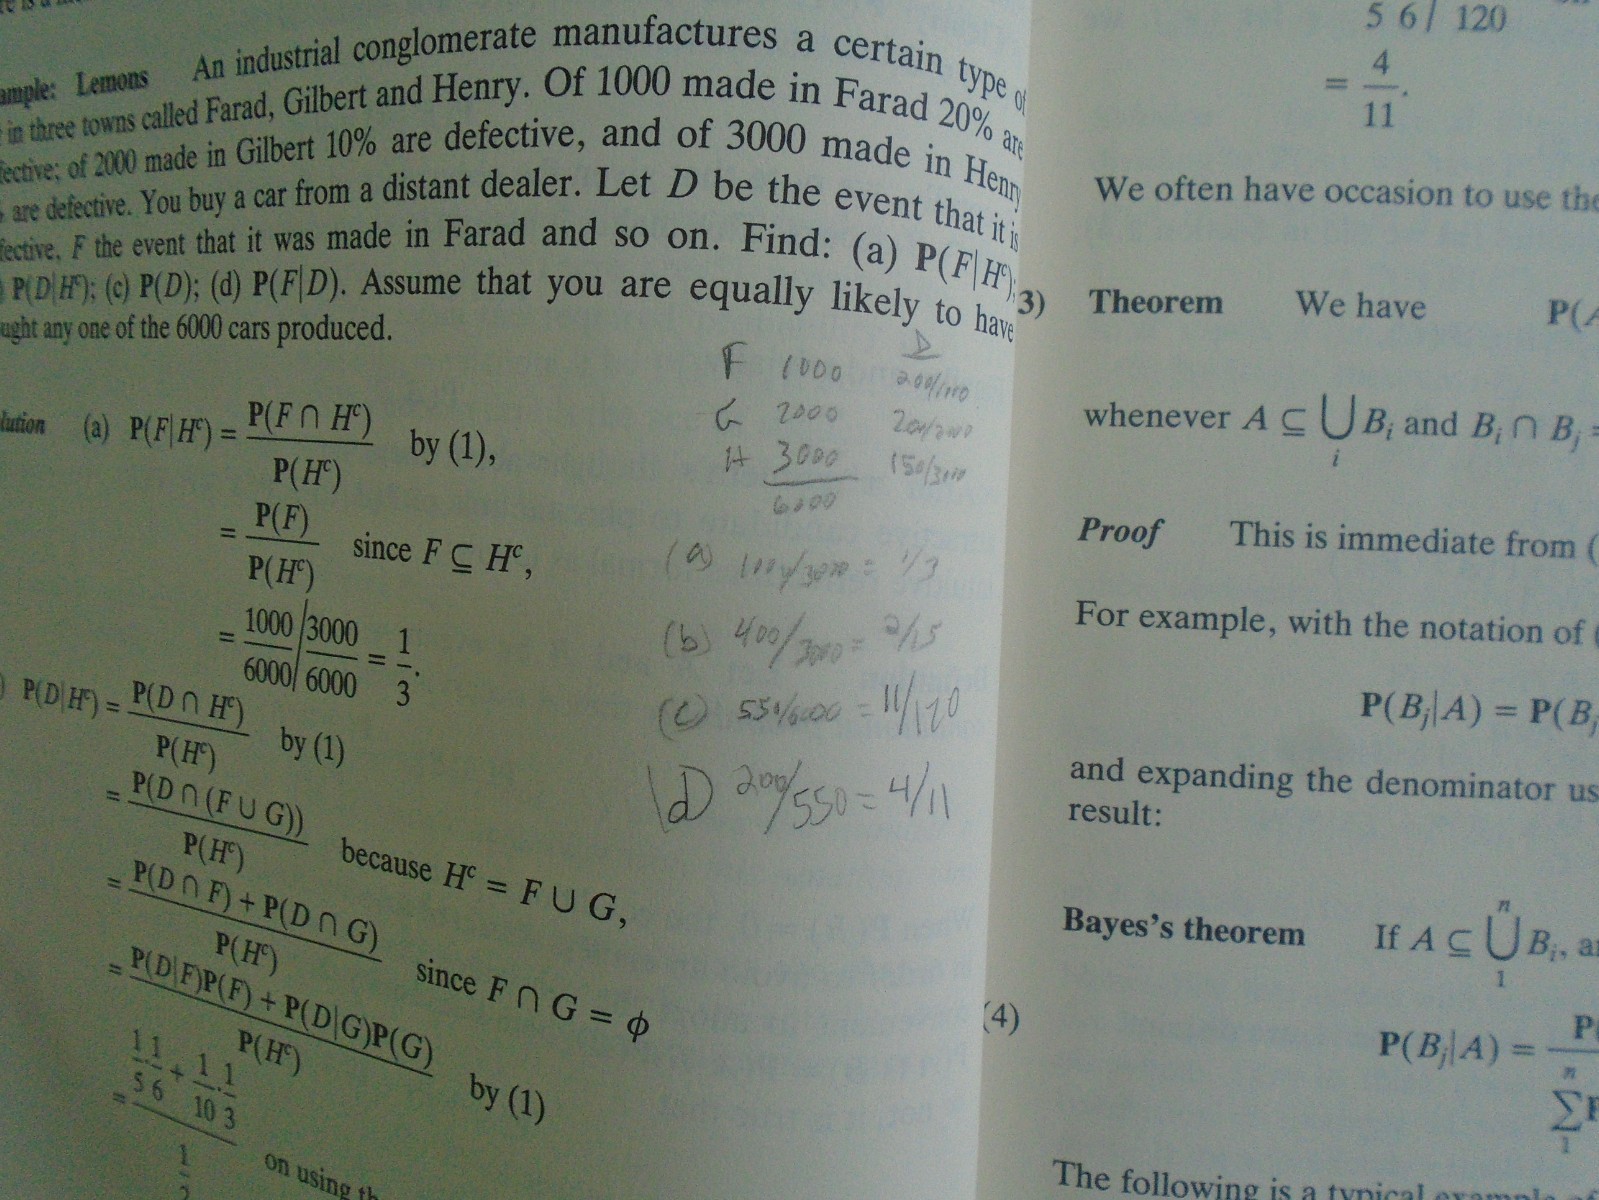 Lemons An industrial conglomerate manufactures a certain type of
in three towns called Farad, Gilbert and Henry. Of 1000 made in Farad 20% are
of 2000 made in Gilbert 10% are defective, and of 3000 made in Henry
are defective. You buy a car from a distant dealer. Let D be the event that it is
F the event that it was made in Farad and so on. Find: (a) P(F|Hᶜ);
P(D|Hᶜ); (c) P(D); (d) P(F|D). Assume that you are equally likely to have
any one of the 6000 cars produced.
D
F 1000 200/1000
G 2000 200/2000
H 3000 150/3000
6000
(a) P(F|Hᶜ) = P(F ∩ Hᶜ) / P(Hᶜ) by (1),
= P(F) / P(Hᶜ) since F ⊆ Hᶜ,
= 1000/6000 / 3000/6000 = 1/3.
(a) 1000/3000 = 1/3
(b) 400/3000 = 2/15
(c) 550/6000 = 11/120
(d) 200/550 = 4/11
P(D|Hᶜ) = P(D ∩ Hᶜ) / P(Hᶜ) by (1)
= P(D ∩ (F ∪ G)) / P(Hᶜ) because Hᶜ = F ∪ G,
= P(D ∩ F) + P(D ∩ G) / P(Hᶜ) since F ∩ G = ϕ
= P(D|F)P(F) + P(D|G)P(G) / P(Hᶜ) by (1)
= 1/5 · 1/6 + 1/10 · 1/3 / 1/2
on using
5 6/ 120
= 4/11.
We often have occasion to use the
3) Theorem We have P(A
whenever A ⊆ ⋃ᵢ Bᵢ and Bᵢ ∩ Bⱼ =
Proof This is immediate from (
For example, with the notation of (
P(Bⱼ|A) = P(Bⱼ
and expanding the denominator us
result:
Bayes's theorem If A ⊆ ⋃₁ⁿ Bᵢ, a
(4) P(Bⱼ|A) = P / ∑₁ⁿ P
The following is a typical example of